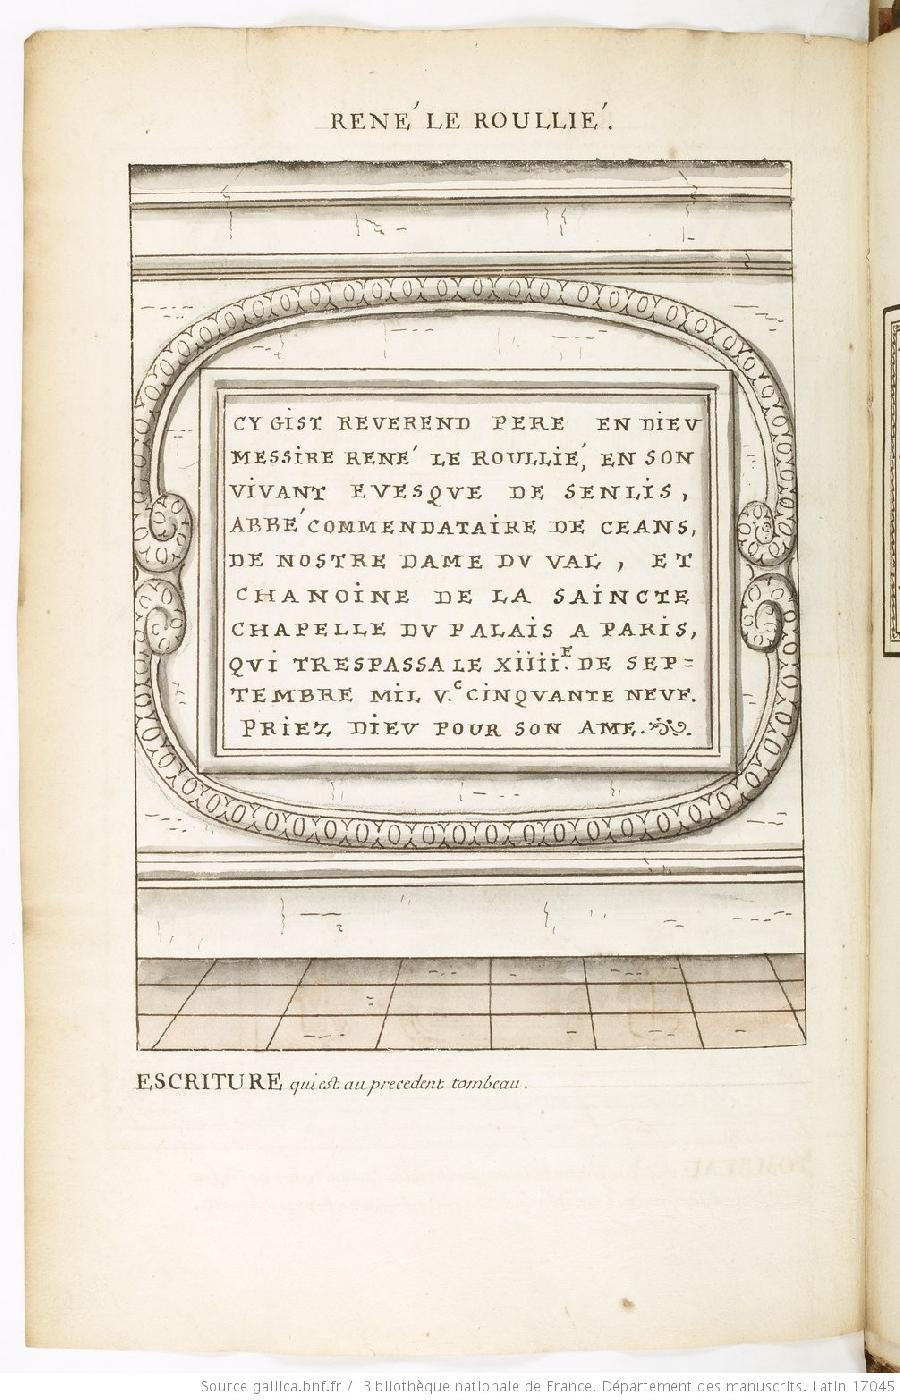 RENÉ LE ROULLIÉ.
CY GiST REVEREND PERE EN DiEV
MESSiRE RENÉ LE ROULLIÉ, EN SON
VIVANT EVESQVE DE SENLIS,
ABBÉ COMMENDATAiRE DE CEANS,
DE NOSTRE DAME DV VAL, ET
CHANOiNE DE LA SAiNCTE
CHAPELLE DV PALAiS A PARiS,
QVi TRESPASSA LE XiiiiE. DE SEP=
TEMBRE MiL V.C CiNQVANTE NEVF.
PRiEZ DiEV POUR SON AME.
ESCRITURE qui est au precedent tombeau.
Source gallica.bnf.fr / Bibliothèque nationale de France. Département des manuscrits. Latin 17045